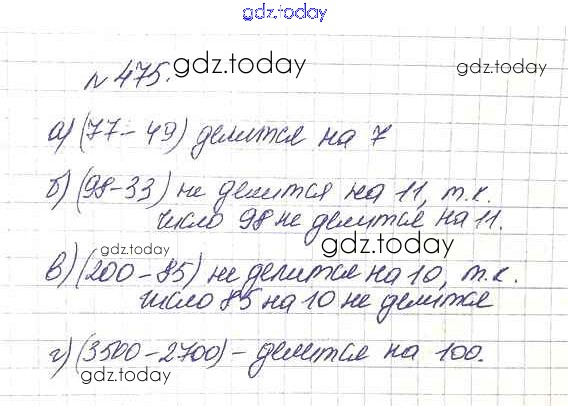 gdz.today
№475. gdz.today
gdz.today
а) (77-49) делится на 7
б) (98-33) не делится на 11, т.к.
число 98 не делится на 11.
gdz.today
gdz.today
в) (200-85) не делится на 10, т.к.
число 85 на 10 не делится
г) (3500-2700) - делится на 100.
gdz.today
gdz.today